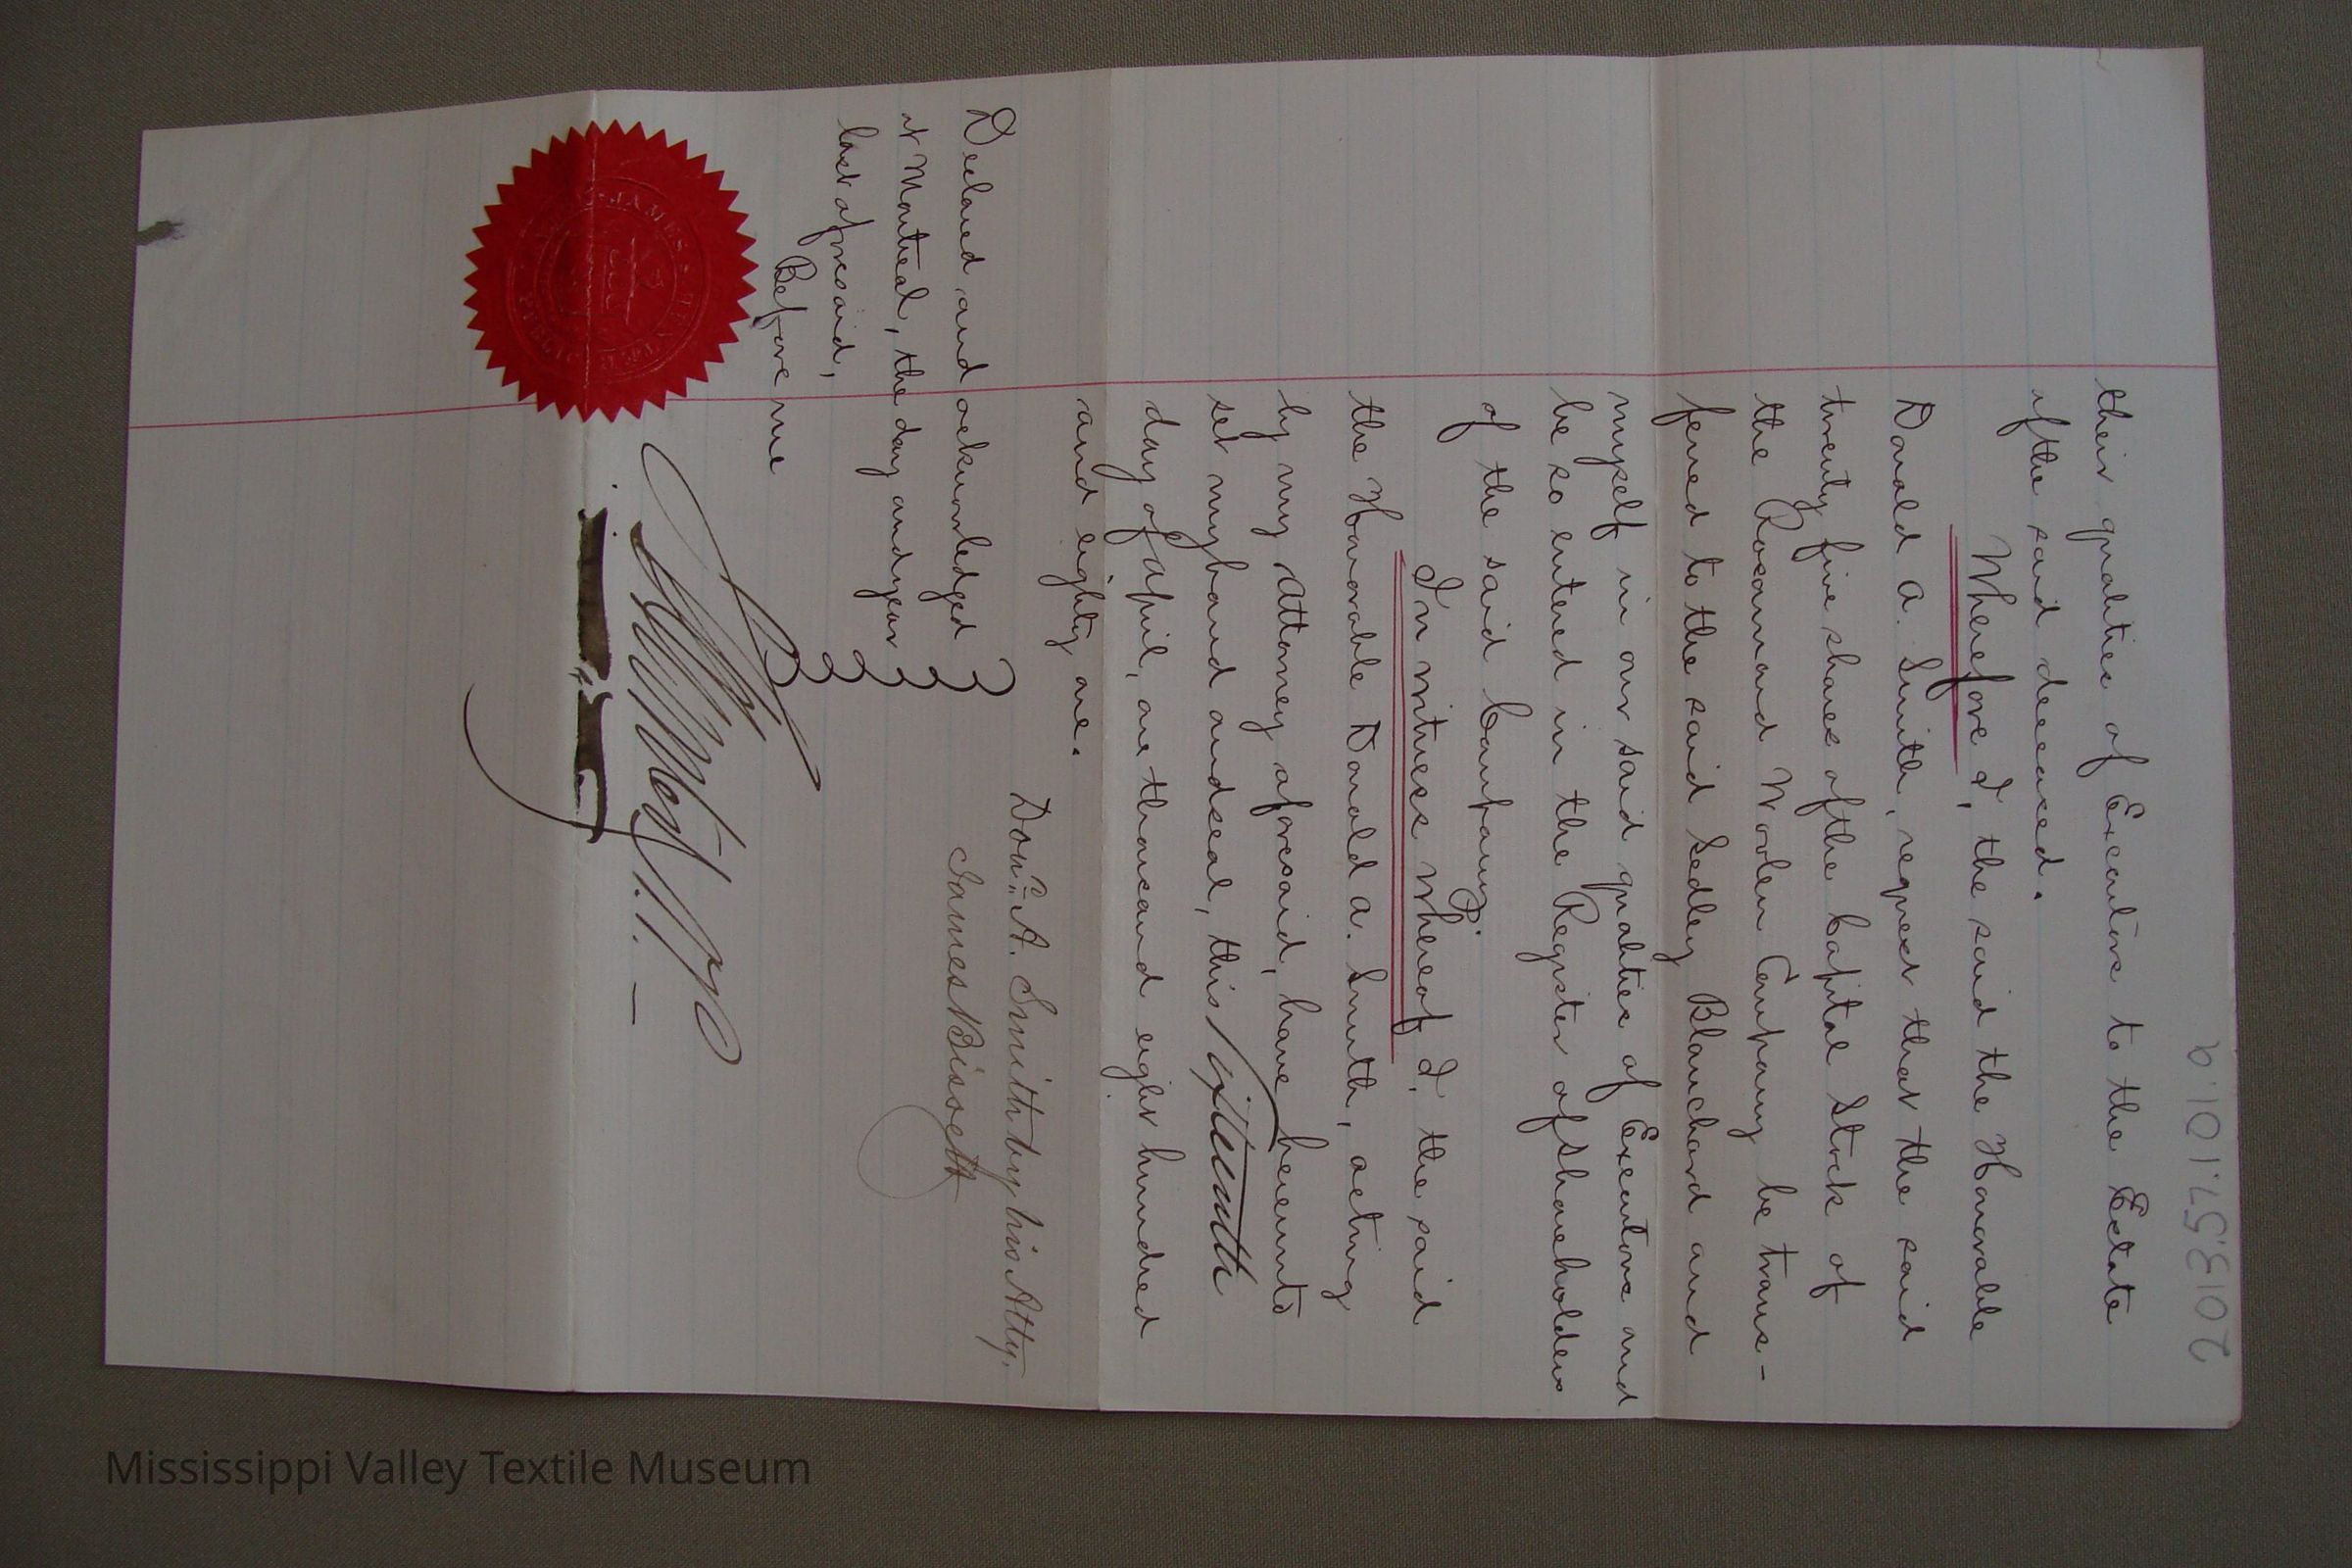 2013.57.101.a
their qualities of Executors to the Estate
of the said deceased.
Wherefore I, the said the Honorable
Donald A. Smith, request that the said
twenty five shares of the Capital Stock of
the Rosamond Woolen Company be trans-
ferred to the said Sedley Blanchard and
myself in our said qualities of Executors and
be so entered in the Register of Shareholders
of the said Company.
In witness whereof I, the said
the Honorable Donald A. Smith, acting
by my Attorney aforesaid, have hereunto
set my hand and seal, this sixteenth
day of April, one thousand eight hundred
and eighty one.
Don: A. Smith by his Atty.
James Bissett
Declared and acknowledged
at Montreal, the day and year
last aforesaid,
Before me
JAMES
PUBLIC
Mississippi Valley Textile Museum